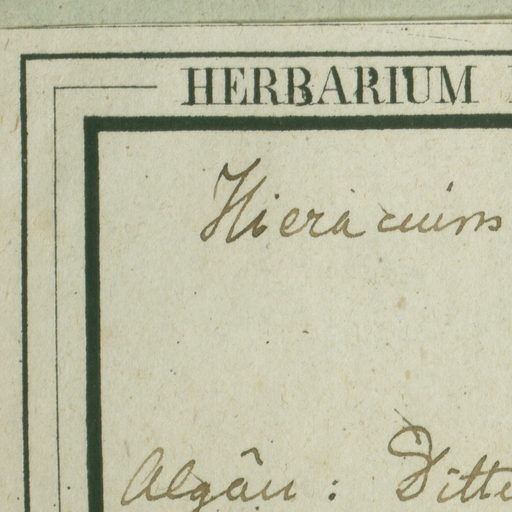 HERBARIUM
Hieracium
Algäu : Ditte